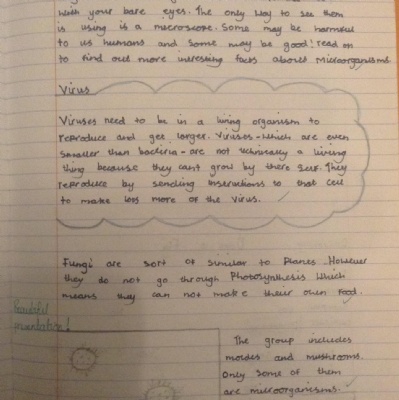 with your bare eyes. The only way to see them
is using is a microscope. Some may be harmful
to us humans and some may be good! read on
to find out more intressting facts about microorganisms.
Virus
Viruses need to be in a living organism to
reproduce and get larger. Viruses-which are even
smaller than bacteria-are not technically a living
thing because they cant grow by there self. They
reproduce by sending instructions to that cell
to make lots more of the virus.
Fungi are sort of similar to Plants. However
they do not go through Photosynthesis which
means they can not make their own food.
Beautiful
presentation!
The group includes
moldes and mushrooms.
Only some of them
are microorganisms.